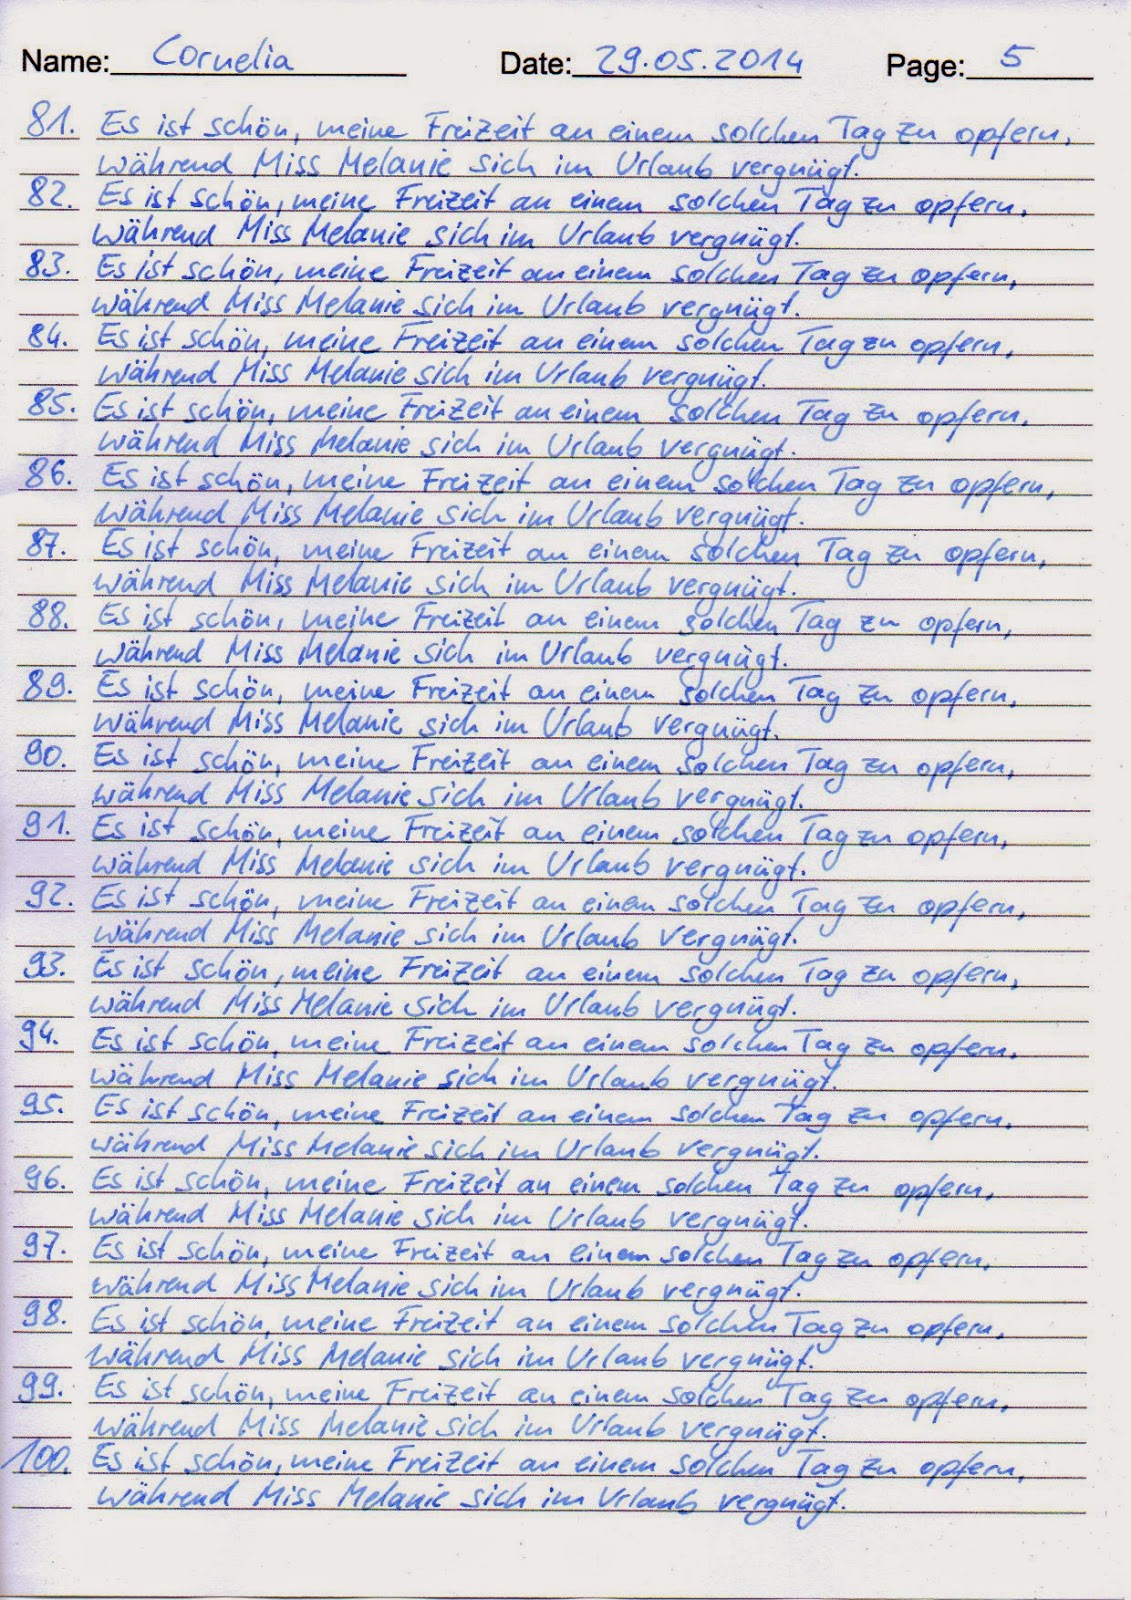 Name: Cornelia Date: 29.05.2014 Page: 5
81. Es ist schön, meine Freizeit an einem solchen Tag zu opfern,
während Miss Melanie sich im Urlaub vergnügt.
82. Es ist schön, meine Freizeit an einem solchen Tag zu opfern,
während Miss Melanie sich im Urlaub vergnügt.
83. Es ist schön, meine Freizeit an einem solchen Tag zu opfern,
während Miss Melanie sich im Urlaub vergnügt.
84. Es ist schön, meine Freizeit an einem solchen Tag zu opfern,
während Miss Melanie sich im Urlaub vergnügt.
85. Es ist schön, meine Freizeit an einem solchen Tag zu opfern,
während Miss Melanie sich im Urlaub vergnügt.
86. Es ist schön, meine Freizeit an einem solchen Tag zu opfern,
während Miss Melanie sich im Urlaub vergnügt.
87. Es ist schön, meine Freizeit an einem solchen Tag zu opfern,
während Miss Melanie sich im Urlaub vergnügt.
88. Es ist schön, meine Freizeit an einem solchen Tag zu opfern,
während Miss Melanie sich im Urlaub vergnügt.
89. Es ist schön, meine Freizeit an einem solchen Tag zu opfern,
während Miss Melanie sich im Urlaub vergnügt.
90. Es ist schön, meine Freizeit an einem solchen Tag zu opfern,
während Miss Melanie sich im Urlaub vergnügt.
91. Es ist schön, meine Freizeit an einem solchen Tag zu opfern,
während Miss Melanie sich im Urlaub vergnügt.
92. Es ist schön, meine Freizeit an einem solchen Tag zu opfern,
während Miss Melanie sich im Urlaub vergnügt.
93. Es ist schön, meine Freizeit an einem solchen Tag zu opfern,
während Miss Melanie sich im Urlaub vergnügt.
94. Es ist schön, meine Freizeit an einem solchen Tag zu opfern,
während Miss Melanie sich im Urlaub vergnügt.
95. Es ist schön, meine Freizeit an einem solchen Tag zu opfern,
während Miss Melanie sich im Urlaub vergnügt.
96. Es ist schön, meine Freizeit an einem solchen Tag zu opfern,
während Miss Melanie sich im Urlaub vergnügt.
97. Es ist schön, meine Freizeit an einem solchen Tag zu opfern,
während Miss Melanie sich im Urlaub vergnügt.
98. Es ist schön, meine Freizeit an einem solchen Tag zu opfern,
während Miss Melanie sich im Urlaub vergnügt.
99. Es ist schön, meine Freizeit an einem solchen Tag zu opfern,
während Miss Melanie sich im Urlaub vergnügt.
100. Es ist schön, meine Freizeit an einem solchen Tag zu opfern,
während Miss Melanie sich im Urlaub vergnügt.